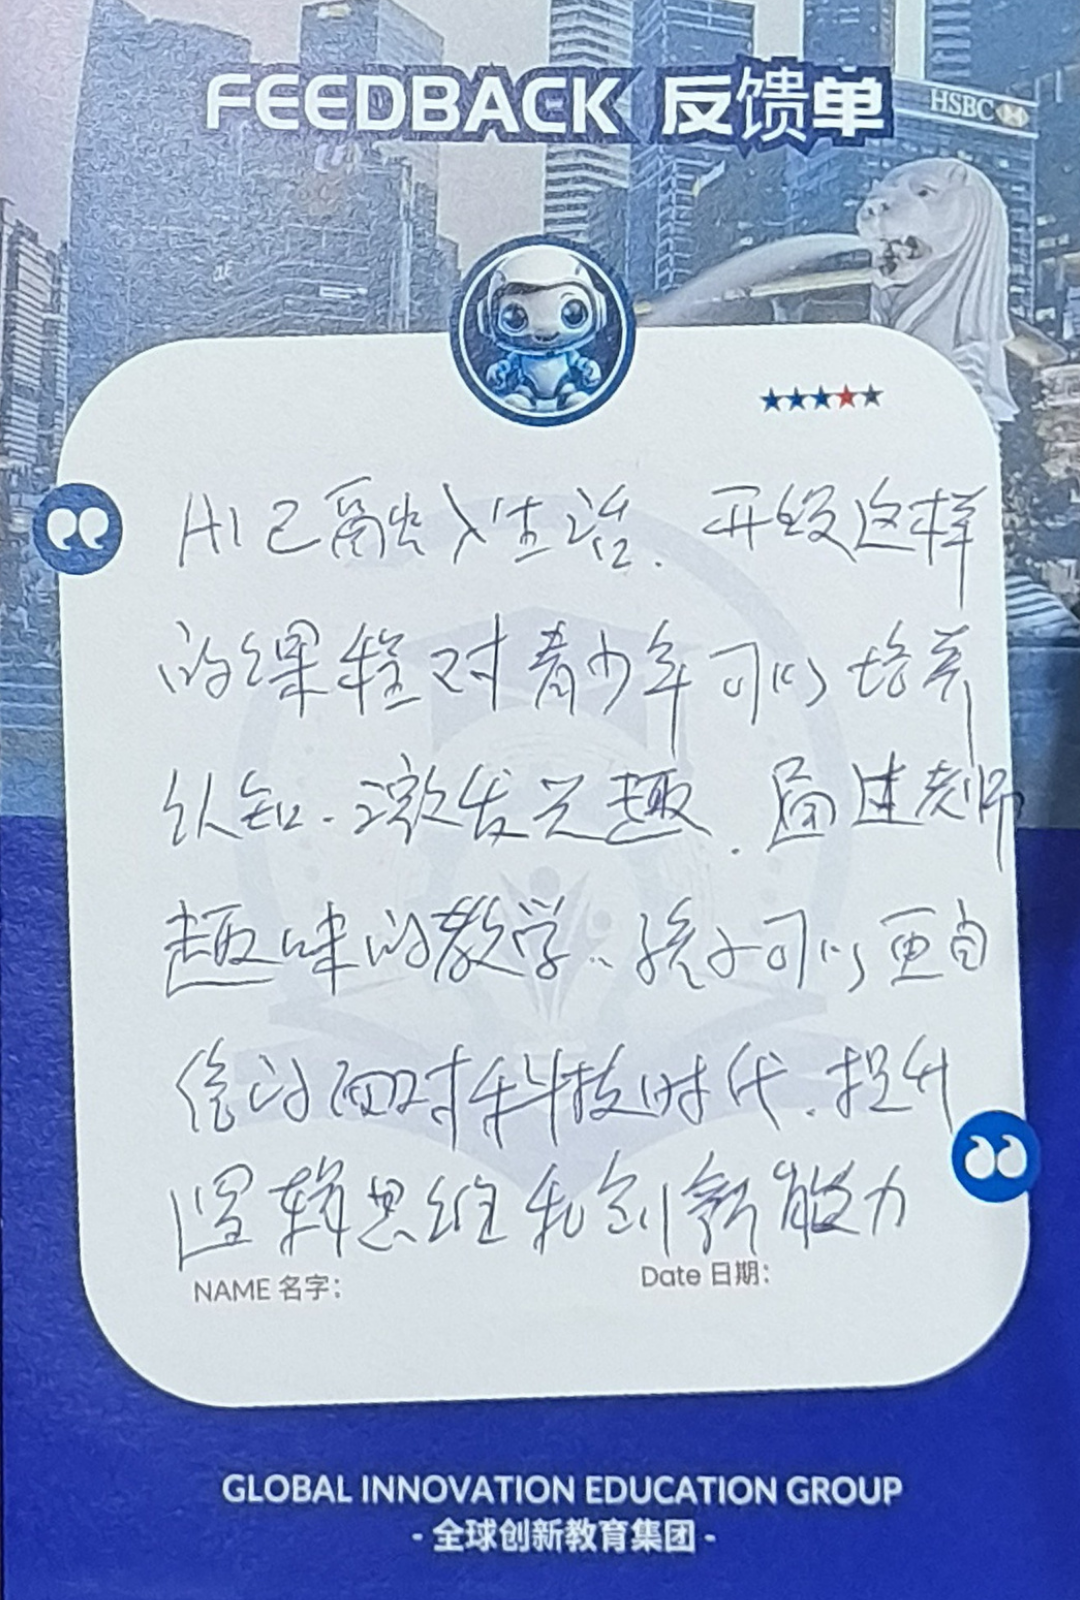 FEEDBACK 反馈单
HSBC
AI已融入生活. 开设这样
的课程对青少年可以培养
认知. 激发兴趣. 通过老师
趣味的教学.. 孩子可以更自
信的面对科技时代. 提升
逻辑思维和创新能力
NAME 名字:
Date 日期:
GLOBAL INNOVATION EDUCATION GROUP
- 全球创新教育集团 -